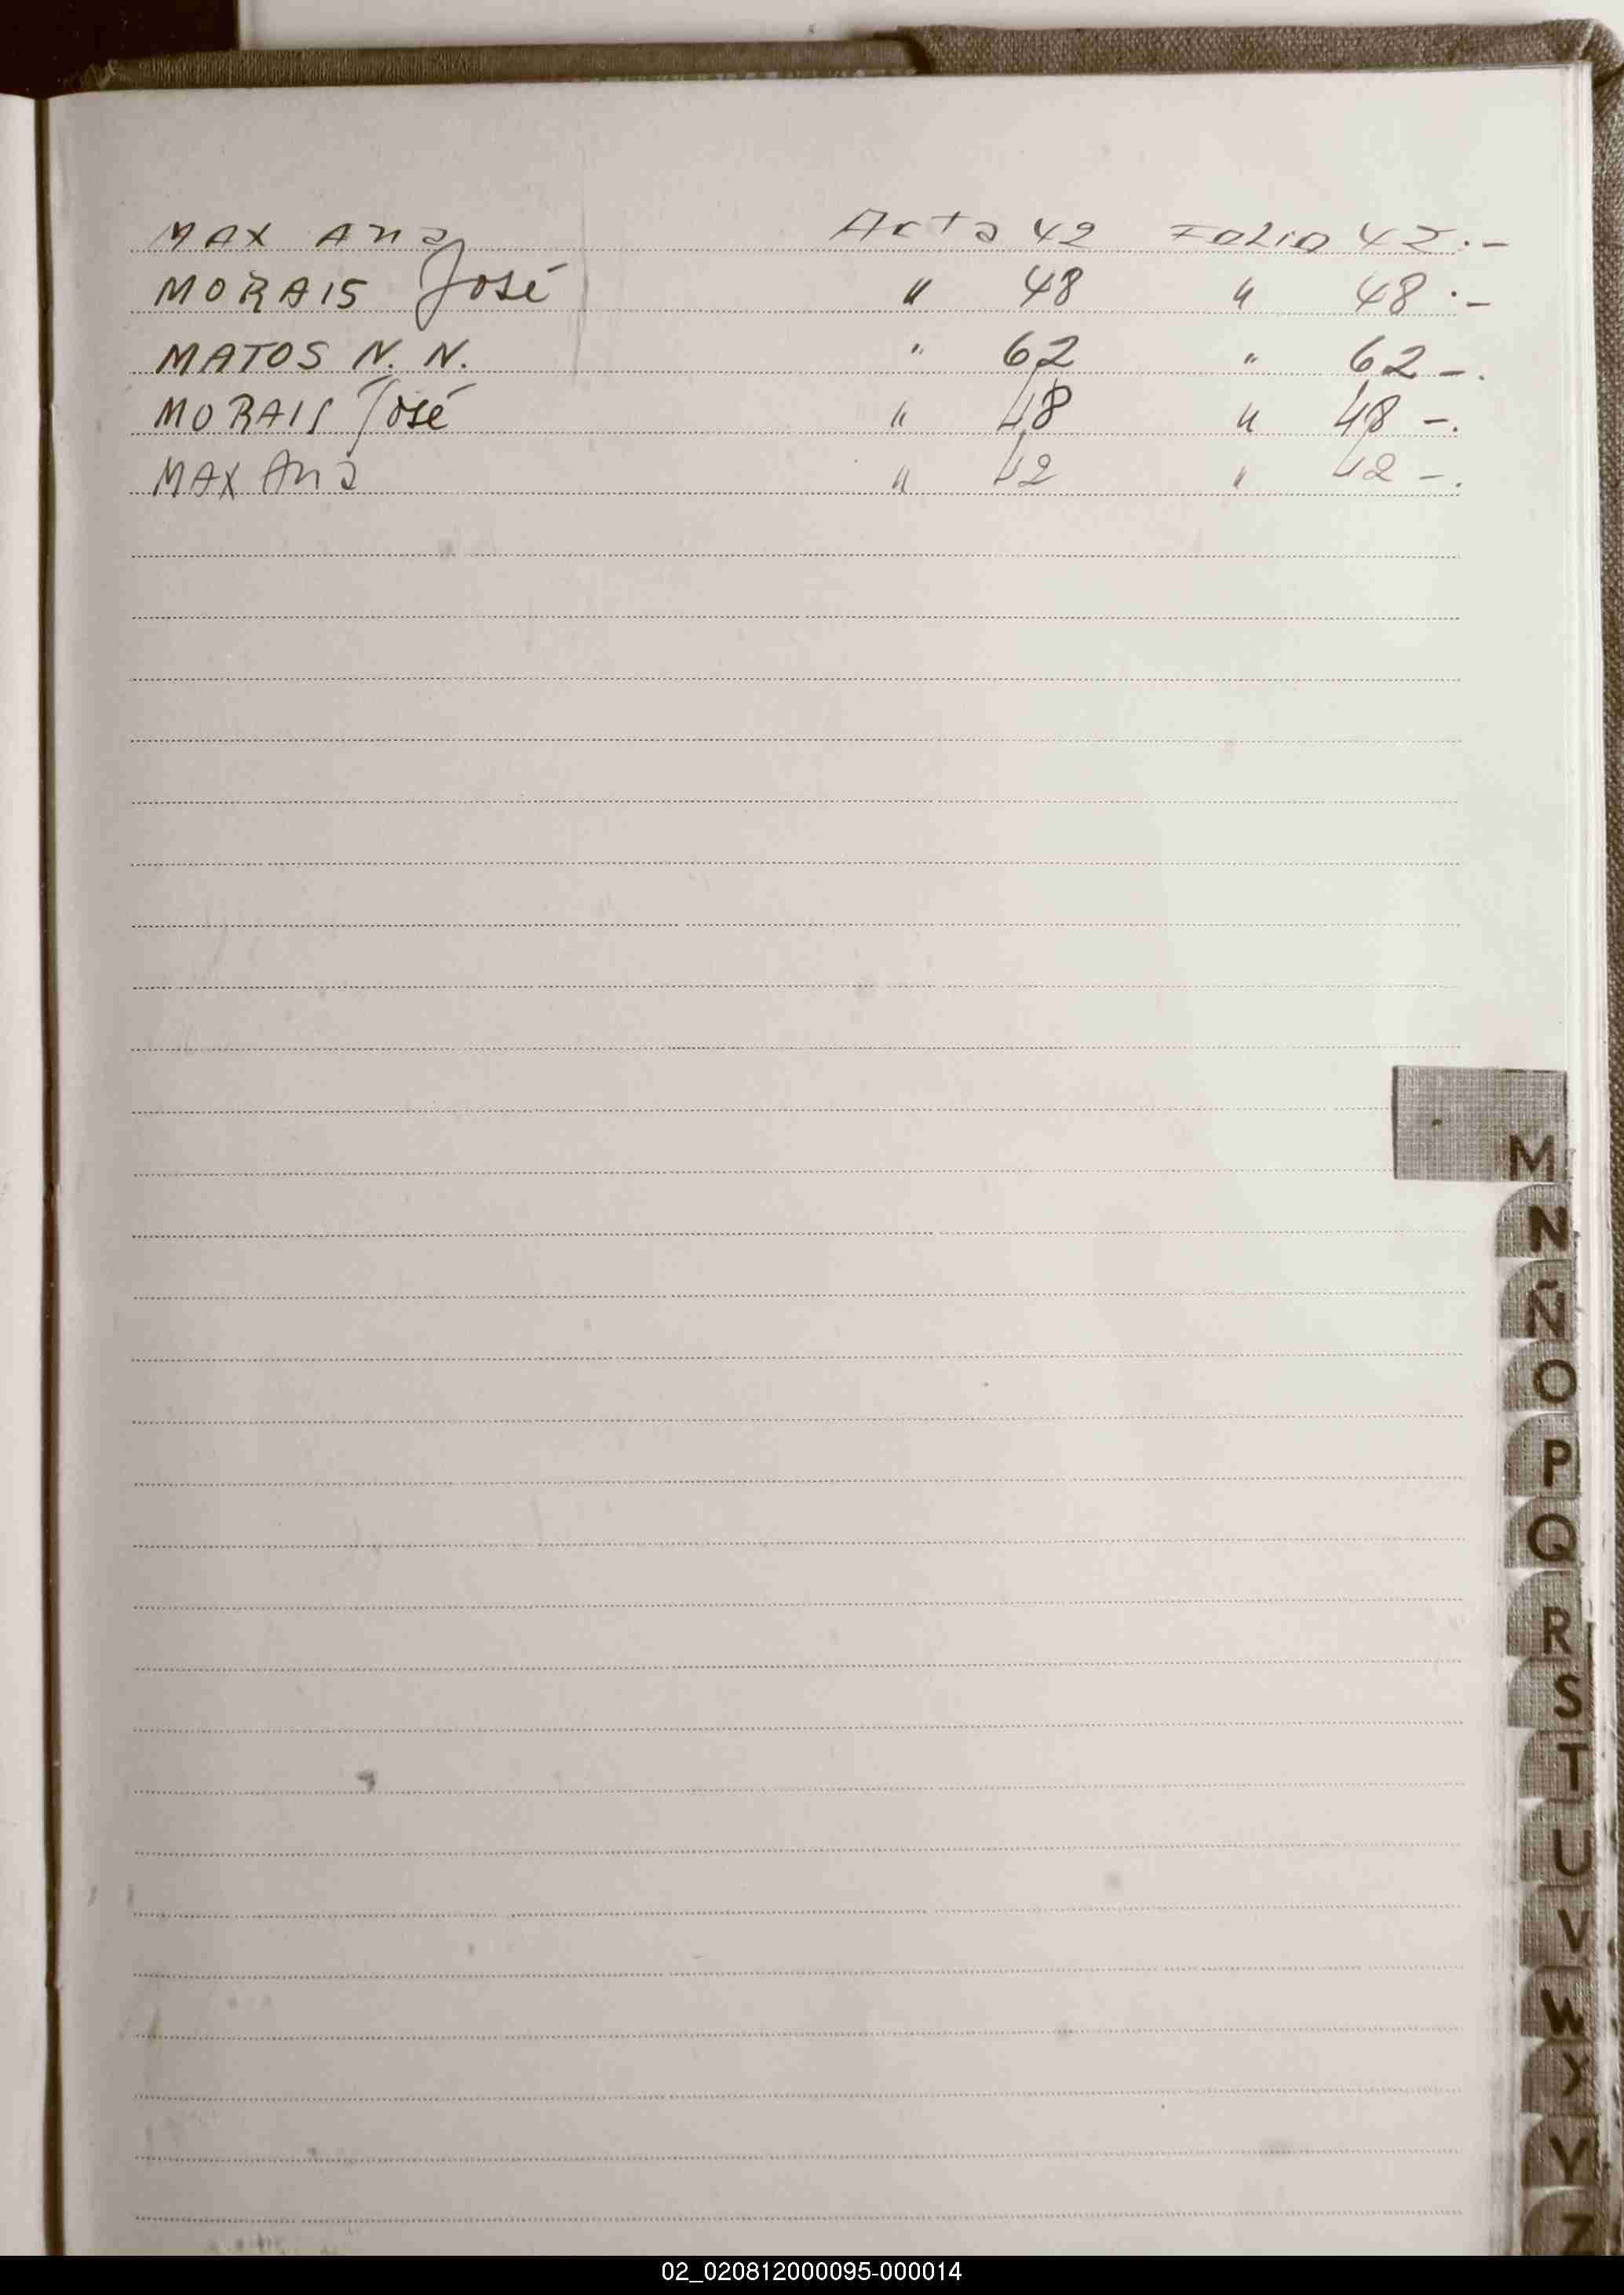 MAX Ana Acta 42 Folio 42.-
MORAIS José " 48 " 48.-
MATOS N. N. " 62 " 62-.
MORAIS José " 48 " 48-.
MAX Ana " 42 " 42-.
M
N
Ñ
O
P
Q
R
S
T
U
V
W
Y
Z
02_020812000095-000014